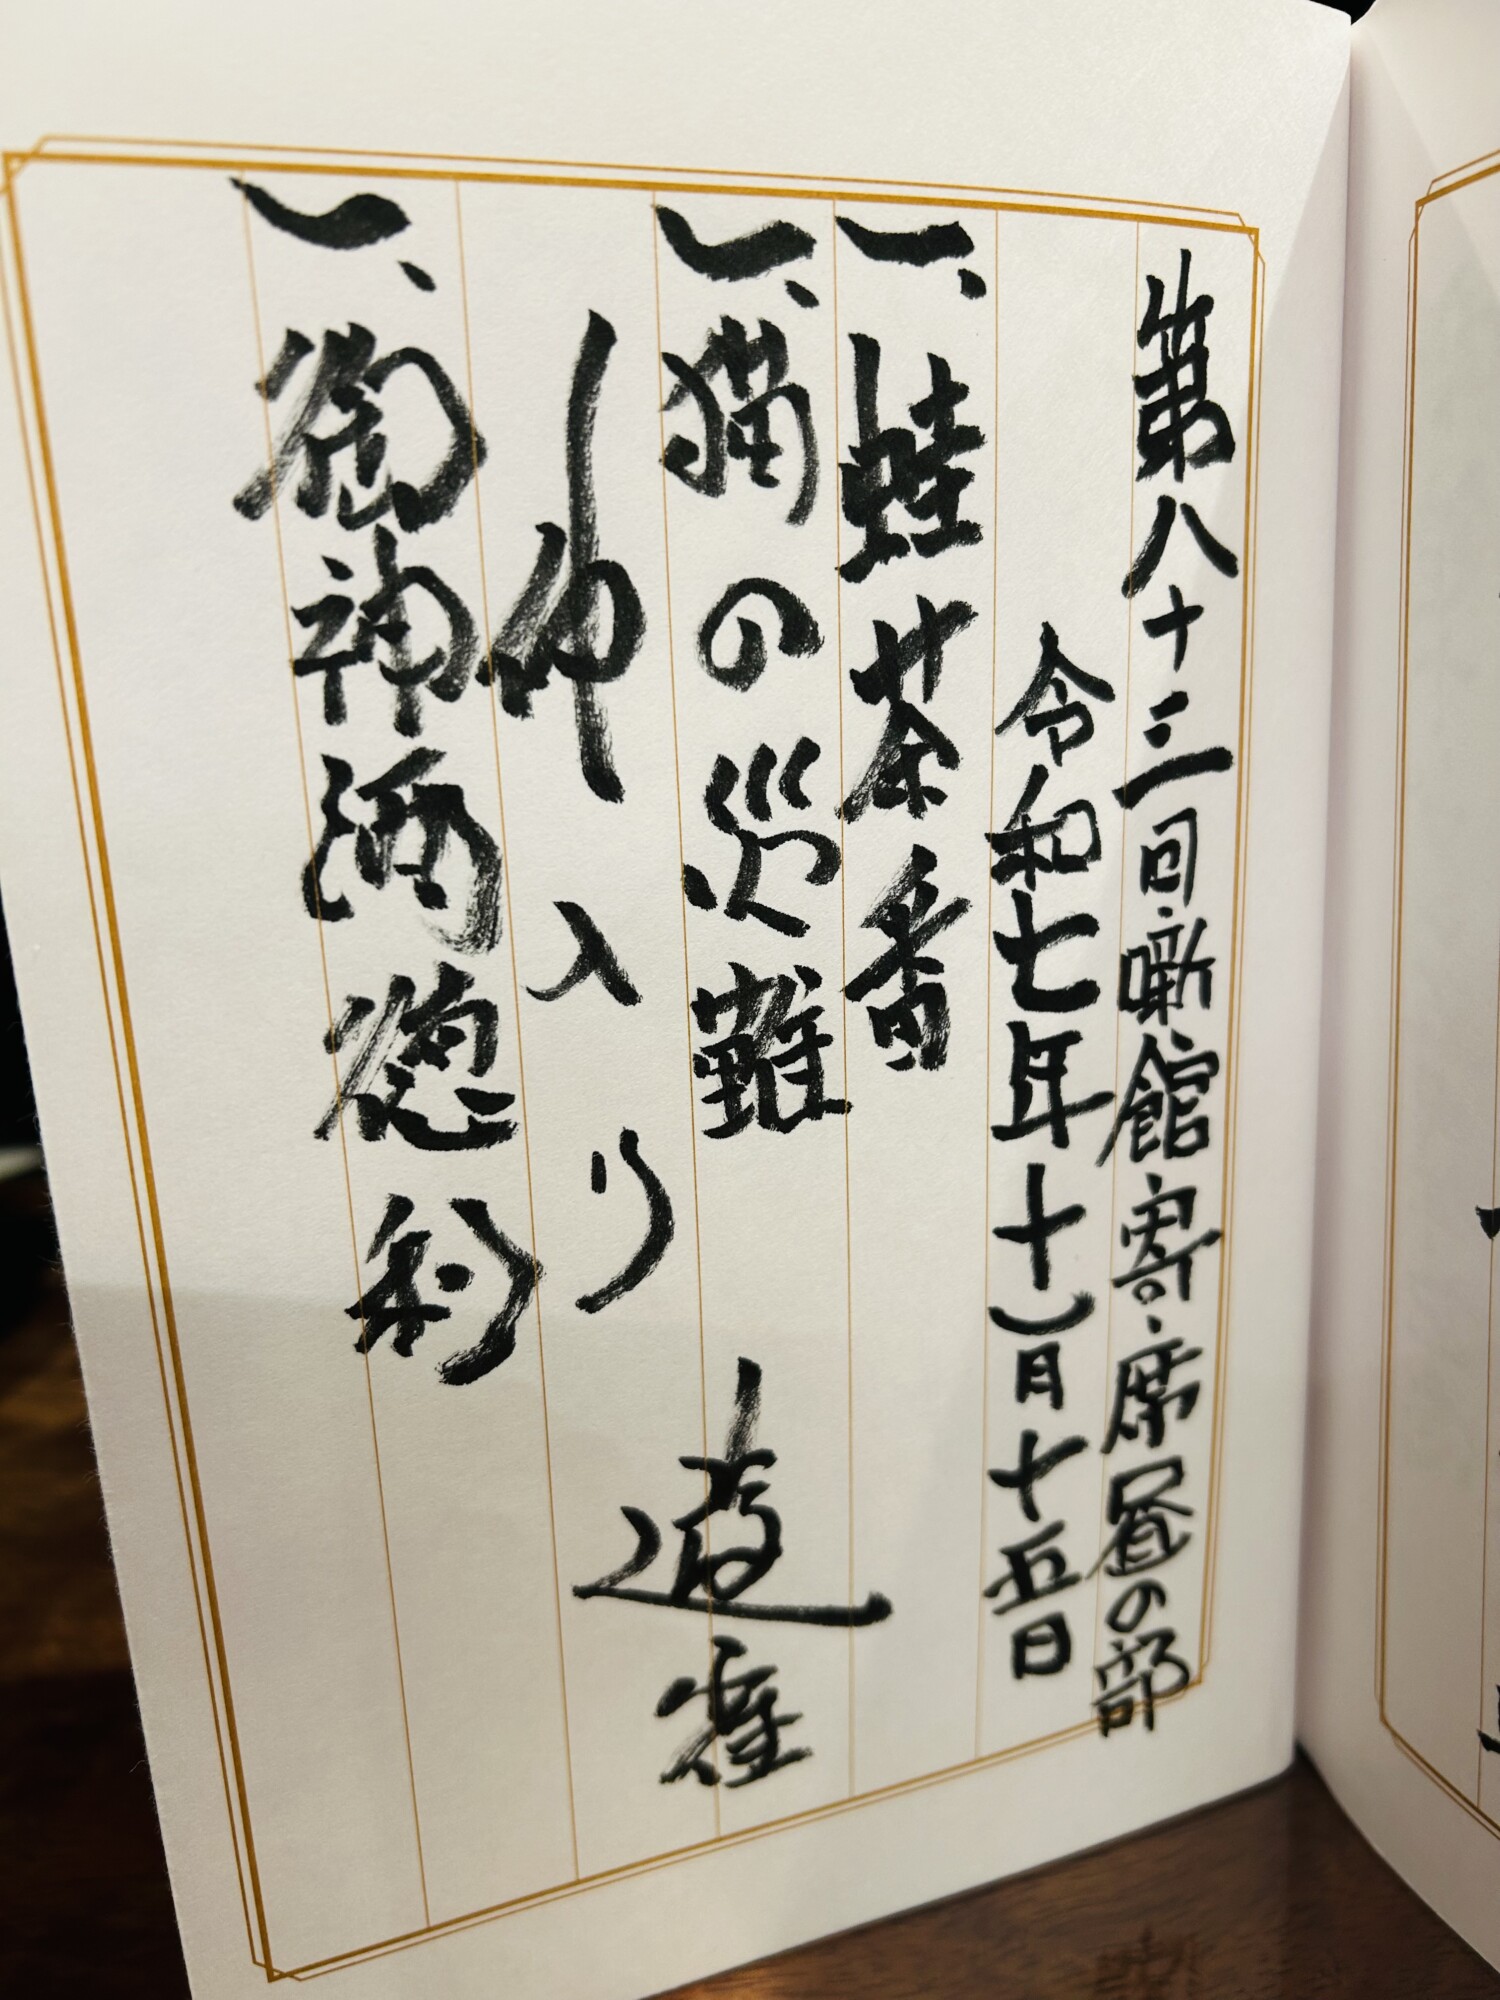 第八十三回噺館寄席昼の部
令和七年十一月十五日
一、蛙茶番
一、猫の災難
遊雀
仲入り
一、御神酒徳利